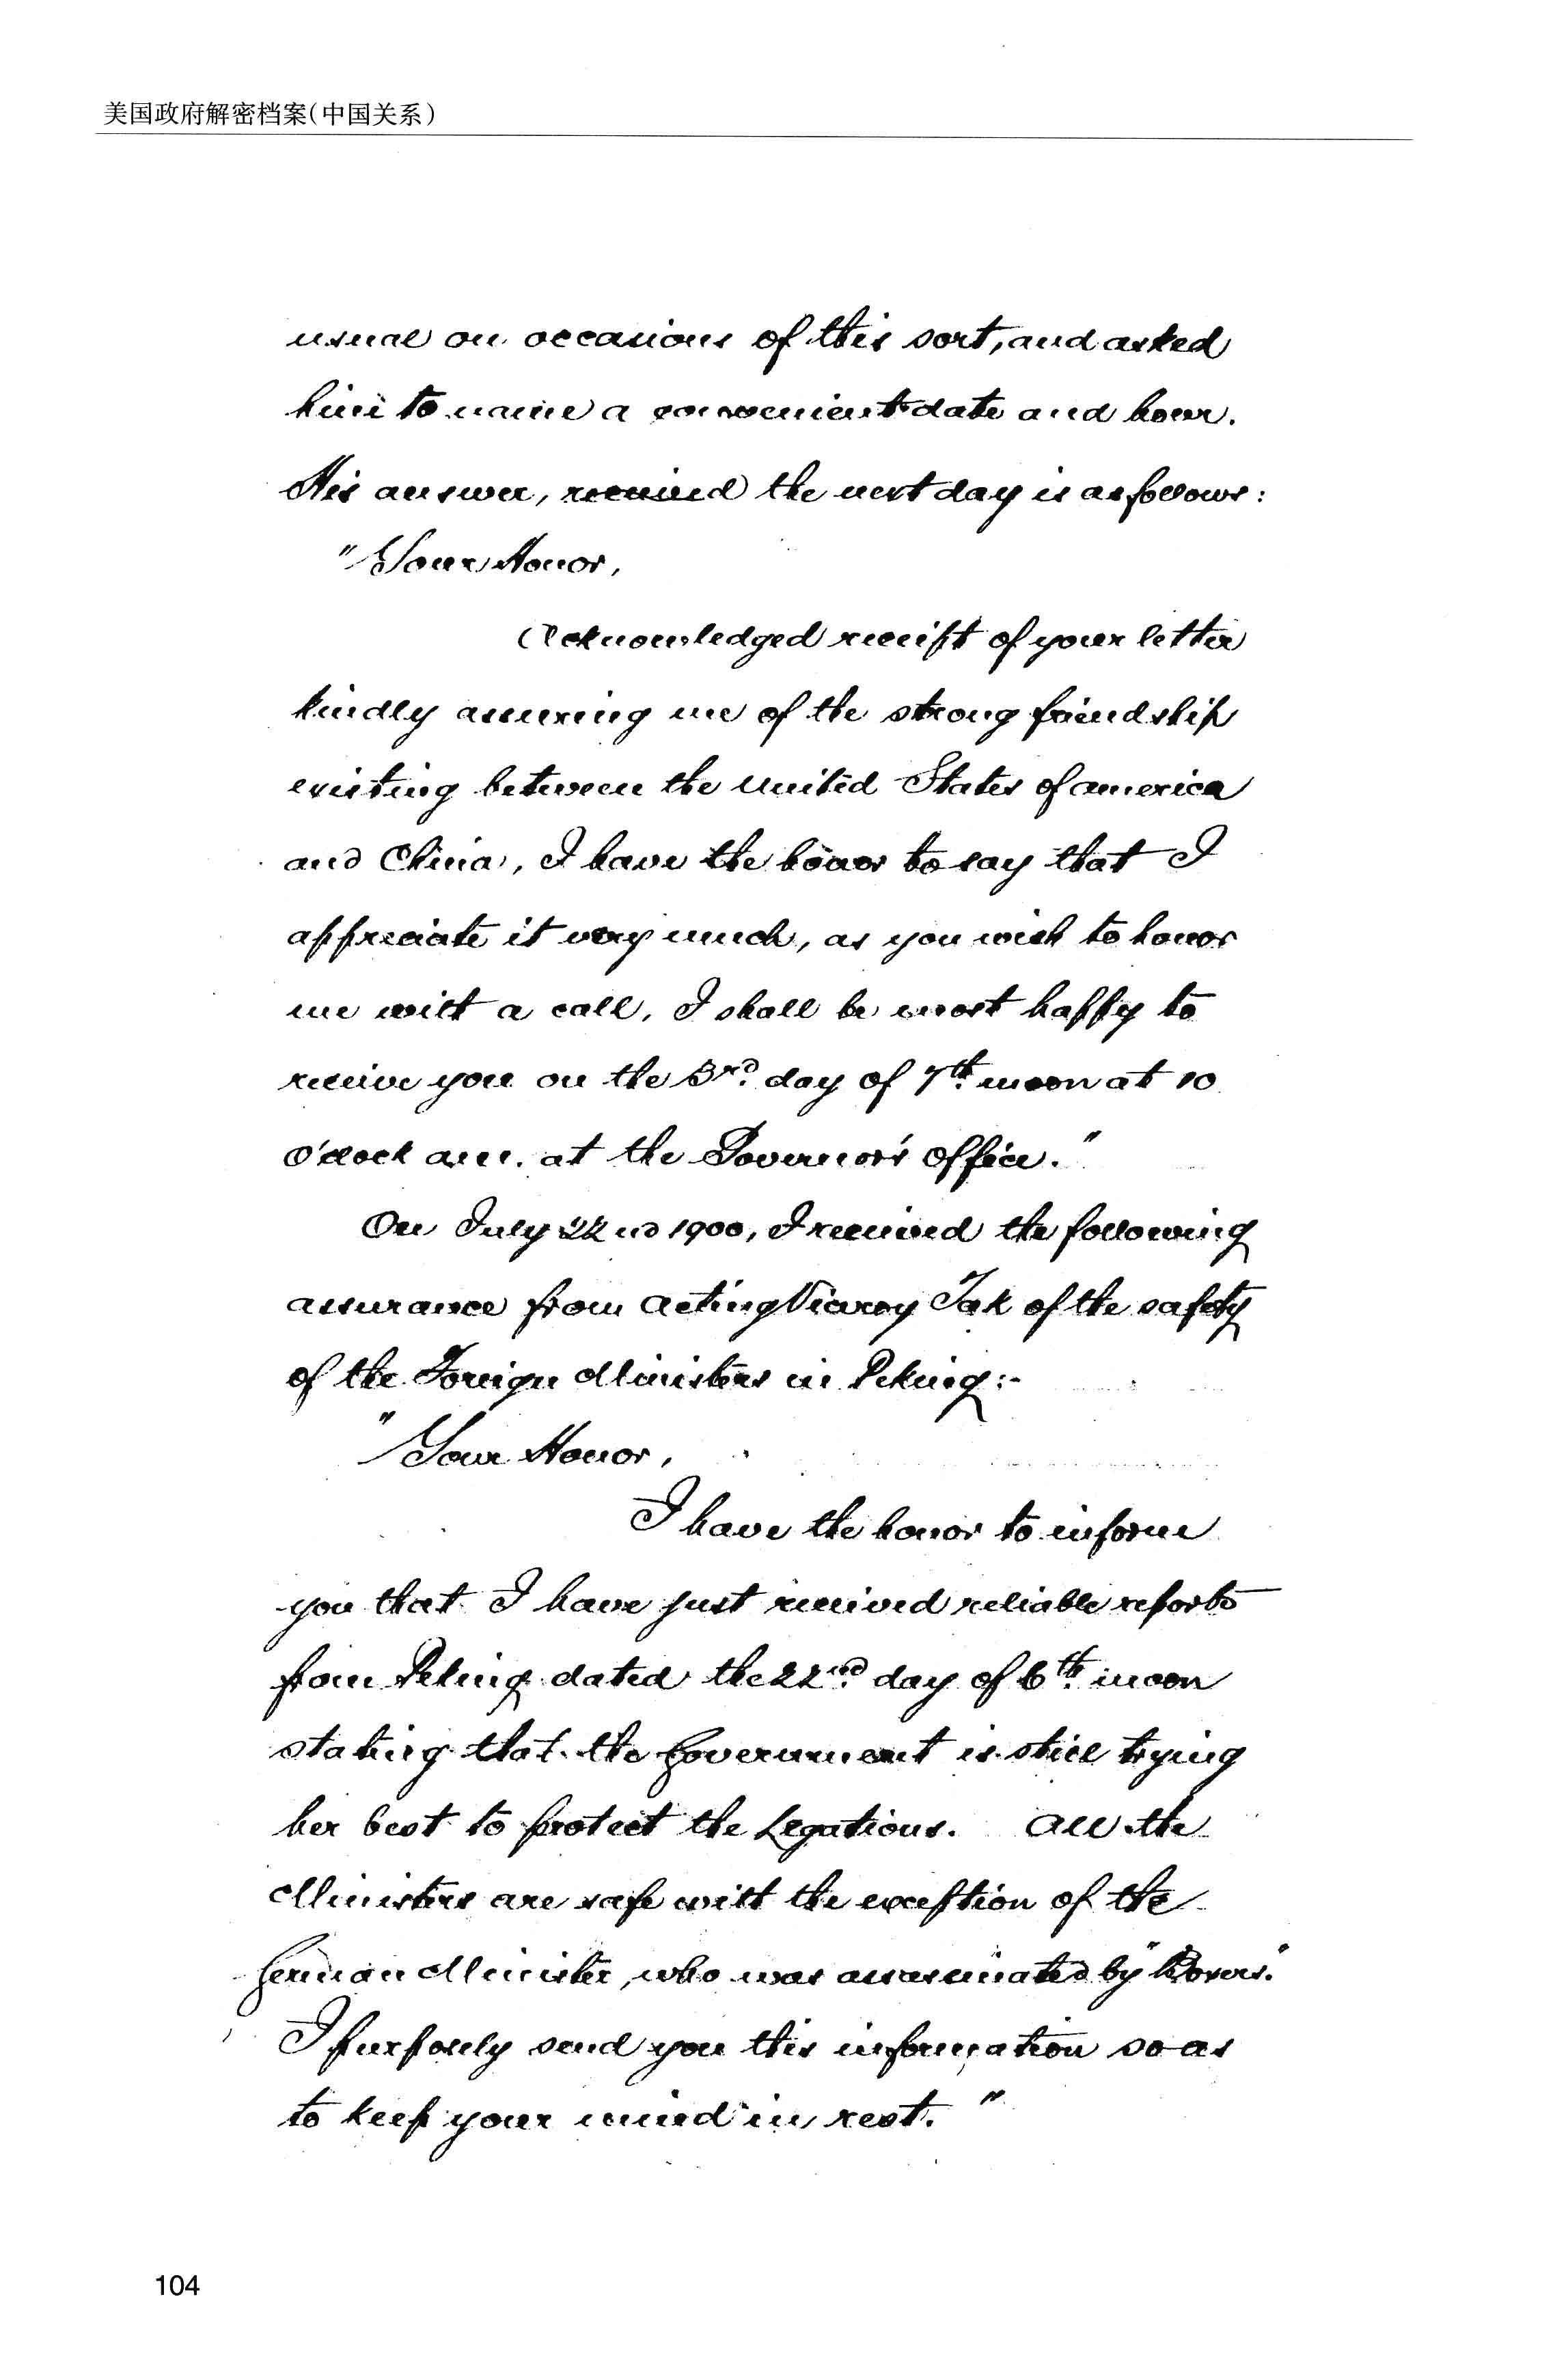 美国政府解密档案(中国关系)
usual on occasions of this sort, and asked
him to name a convenient date and hour.
His answer, received the next day is as follows:
"Your Honor,
Acknowledged receipt of your letter
kindly assuring me of the strong friendship
existing between the United States of America
and China, I have the honor to say that I
appreciate it very much, as you wish to honor
me with a call, I shall be most happy to
receive you on the 3rd. day of 7th. moon at 10
o'clock a.m. at the Governor's office."
On July 22nd 1900, I received the following
assurance from Acting Viceroy Tak of the safety
of the Foreign Ministers in Peking:-
"Your Honor,
I have the honor to inform
you that I have just received reliable reports
from Peking dated the 22nd. day of 6th. moon
stating that the Government is still trying
her best to protect the Legations. All the
Ministers are safe with the exception of the
German Minister, who was assassinated by "Boxers."
I purposely send you this information so as
to keep your mind in rest."
104